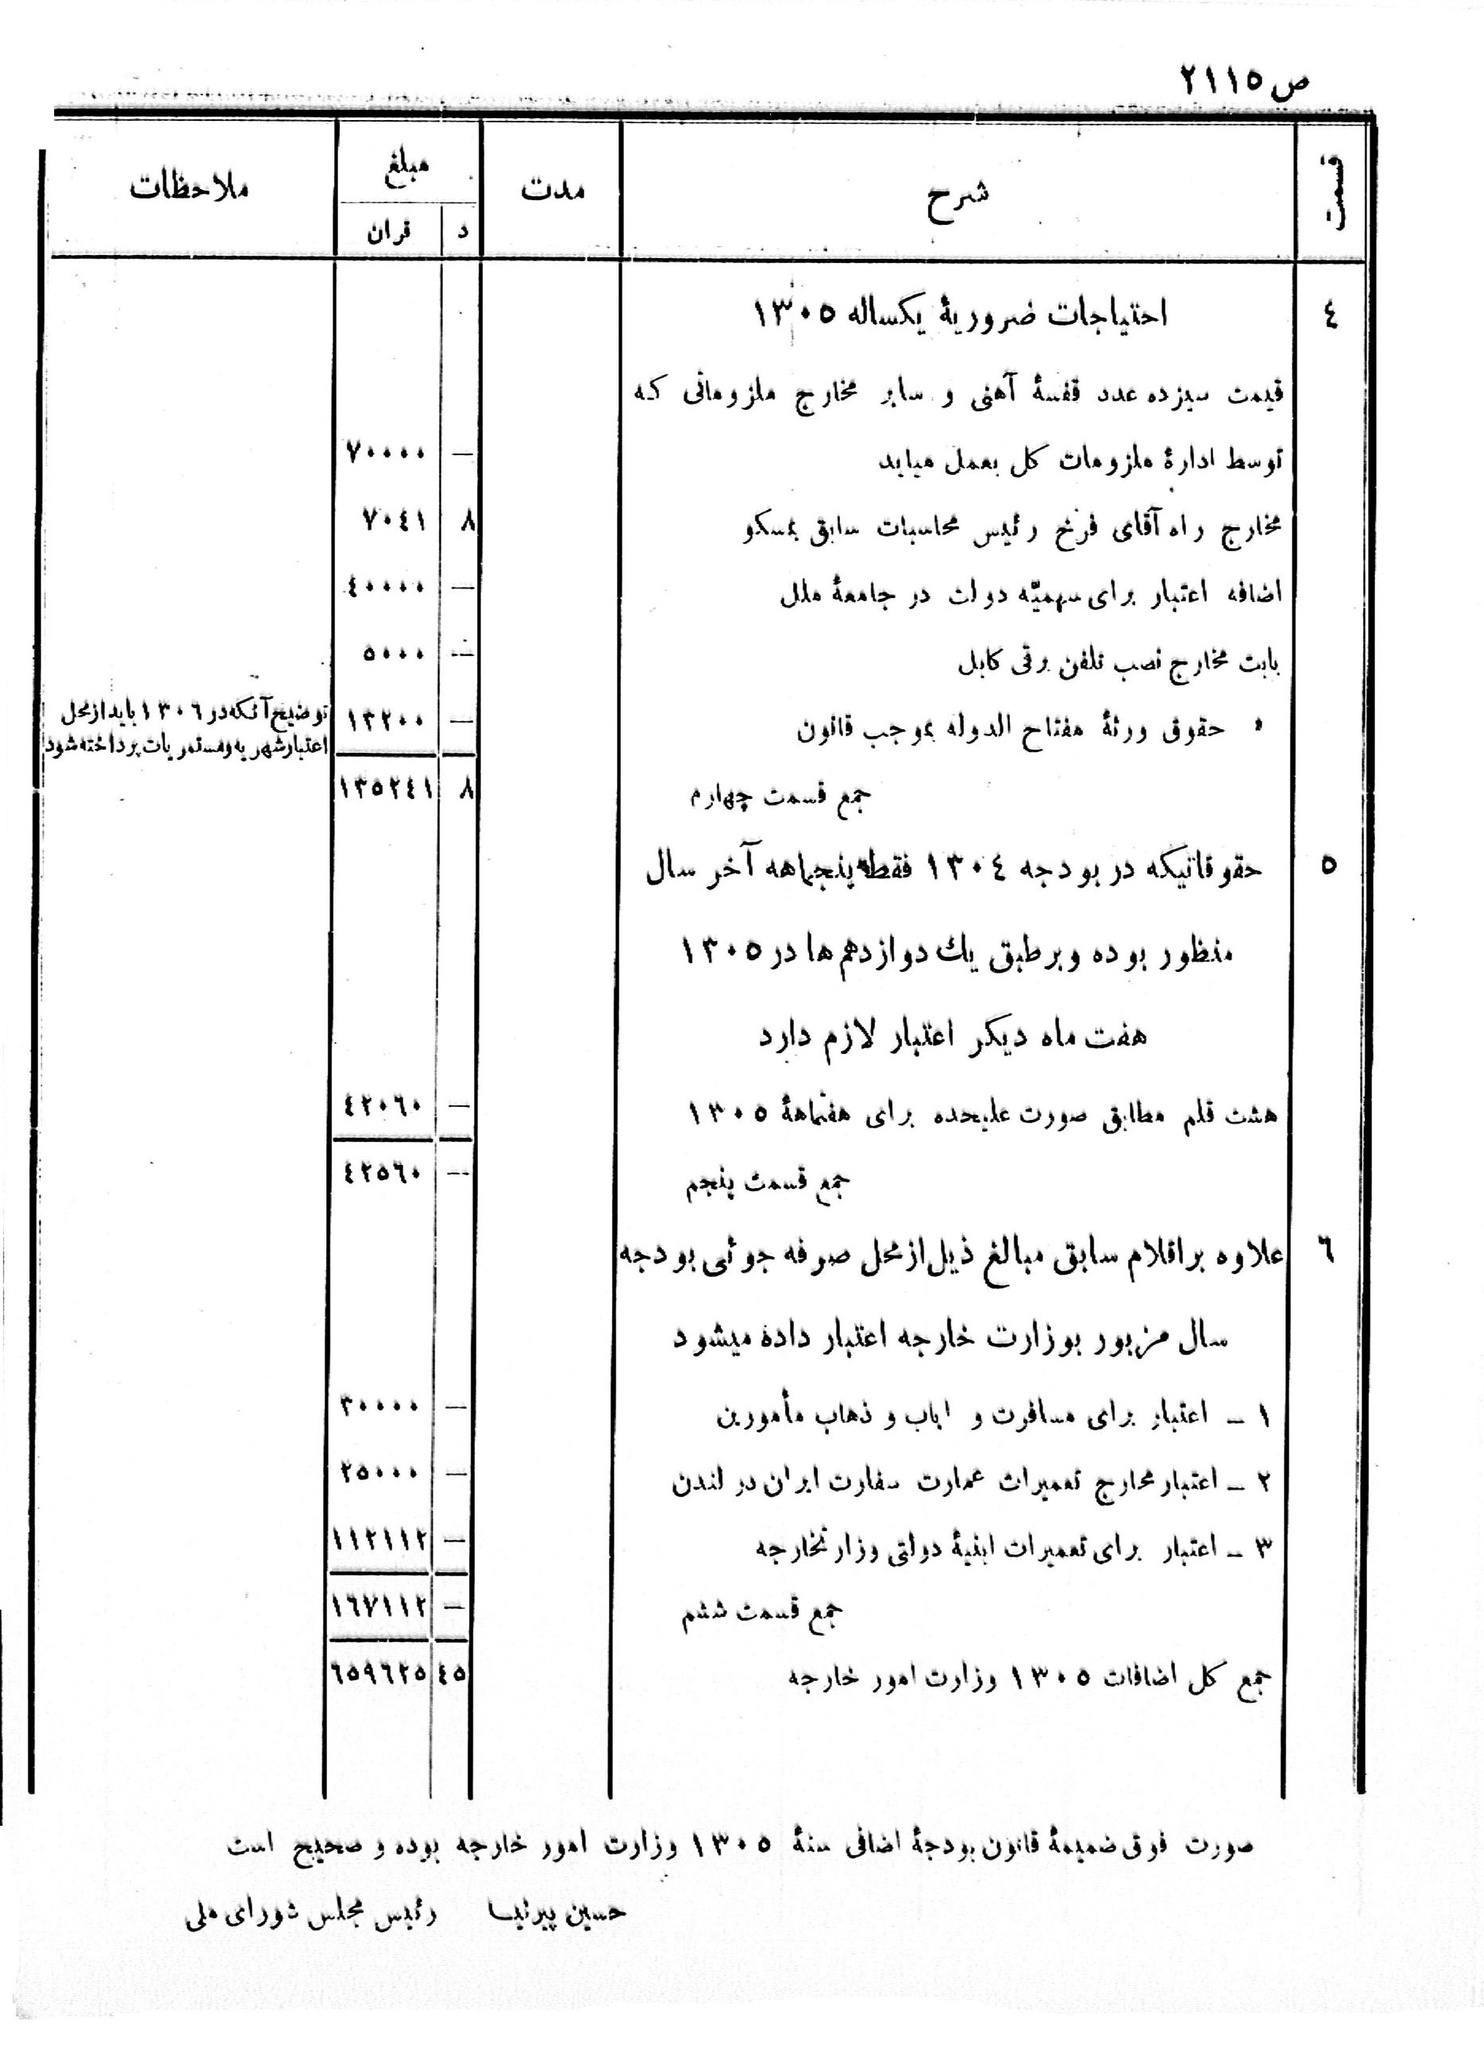 ص ٢١١٥
قسمت شرح مدت مبلغ ملاحظات
د قران
٤ احتیاجات ضروریهٔ یکساله ١٣٠٥
قیمت سیزده عدد قفسهٔ آهنی و سایر مخارج ملزوماتی که
توسط ادارهٔ ملزومات کل بعمل میاید — ٧٠٠٠٠
مخارج راه آقای فرخ رئیس محاسبات سابق بمسکو ٨ ٧٠٤١
اضافه اعتبار برای سهمیّه دولت در جامعهٔ ملل — ٤٠٠٠٠
بابت مخارج نصب تلفن برقی کابل — ٥٠٠٠
حقوق ورثهٔ مفتاح الدوله بموجب قانون — ١٣٢٠٠ توضیح آنکه در ١٣٠٦ باید از محل
اعتبار شهریه و مستمریات پرداخته شود
جمع قسمت چهارم ٨ ١٣٥٢٤١
٥ حقوقاتیکه در بودجه ١٣٠٤ فقط پنجماهه آخر سال
منظور بوده و برطبق یك دوازدهم ها در ١٣٠٥
هفت ماه دیگر اعتبار لازم دارد
هشت قلم مطابق صورت علیحده برای هفتماههٔ ١٣٠٥ — ٤٢٠٦٠
جمع قسمت پنجم — ٤٢٥٦٠
٦ علاوه بر اقلام سابق مبالغ ذیل از محل صرفه جوئی بودجه
سال مزبور بوزارت خارجه اعتبار داده میشود
١ – اعتبار برای مسافرت و ایاب و ذهاب مأمورین — ٣٠٠٠٠
٢ – اعتبار مخارج تعمیرات عمارت سفارت ایران در لندن — ٢٥٠٠٠
٣ – اعتبار برای تعمیرات ابنیهٔ دولتی وزارتخارجه — ١١٢١١٢
جمع قسمت ششم — ١٦٧١١٢
جمع کل اضافات ١٣٠٥ وزارت امور خارجه ٤٥ ٦٥٩٦٢٥
صورت فوق ضمیمهٔ قانون بودجهٔ اضافی سنهٔ ١٣٠٥ وزارت امور خارجه بوده و صحیح است
رئیس مجلس شورای ملی حسین پیرنیا